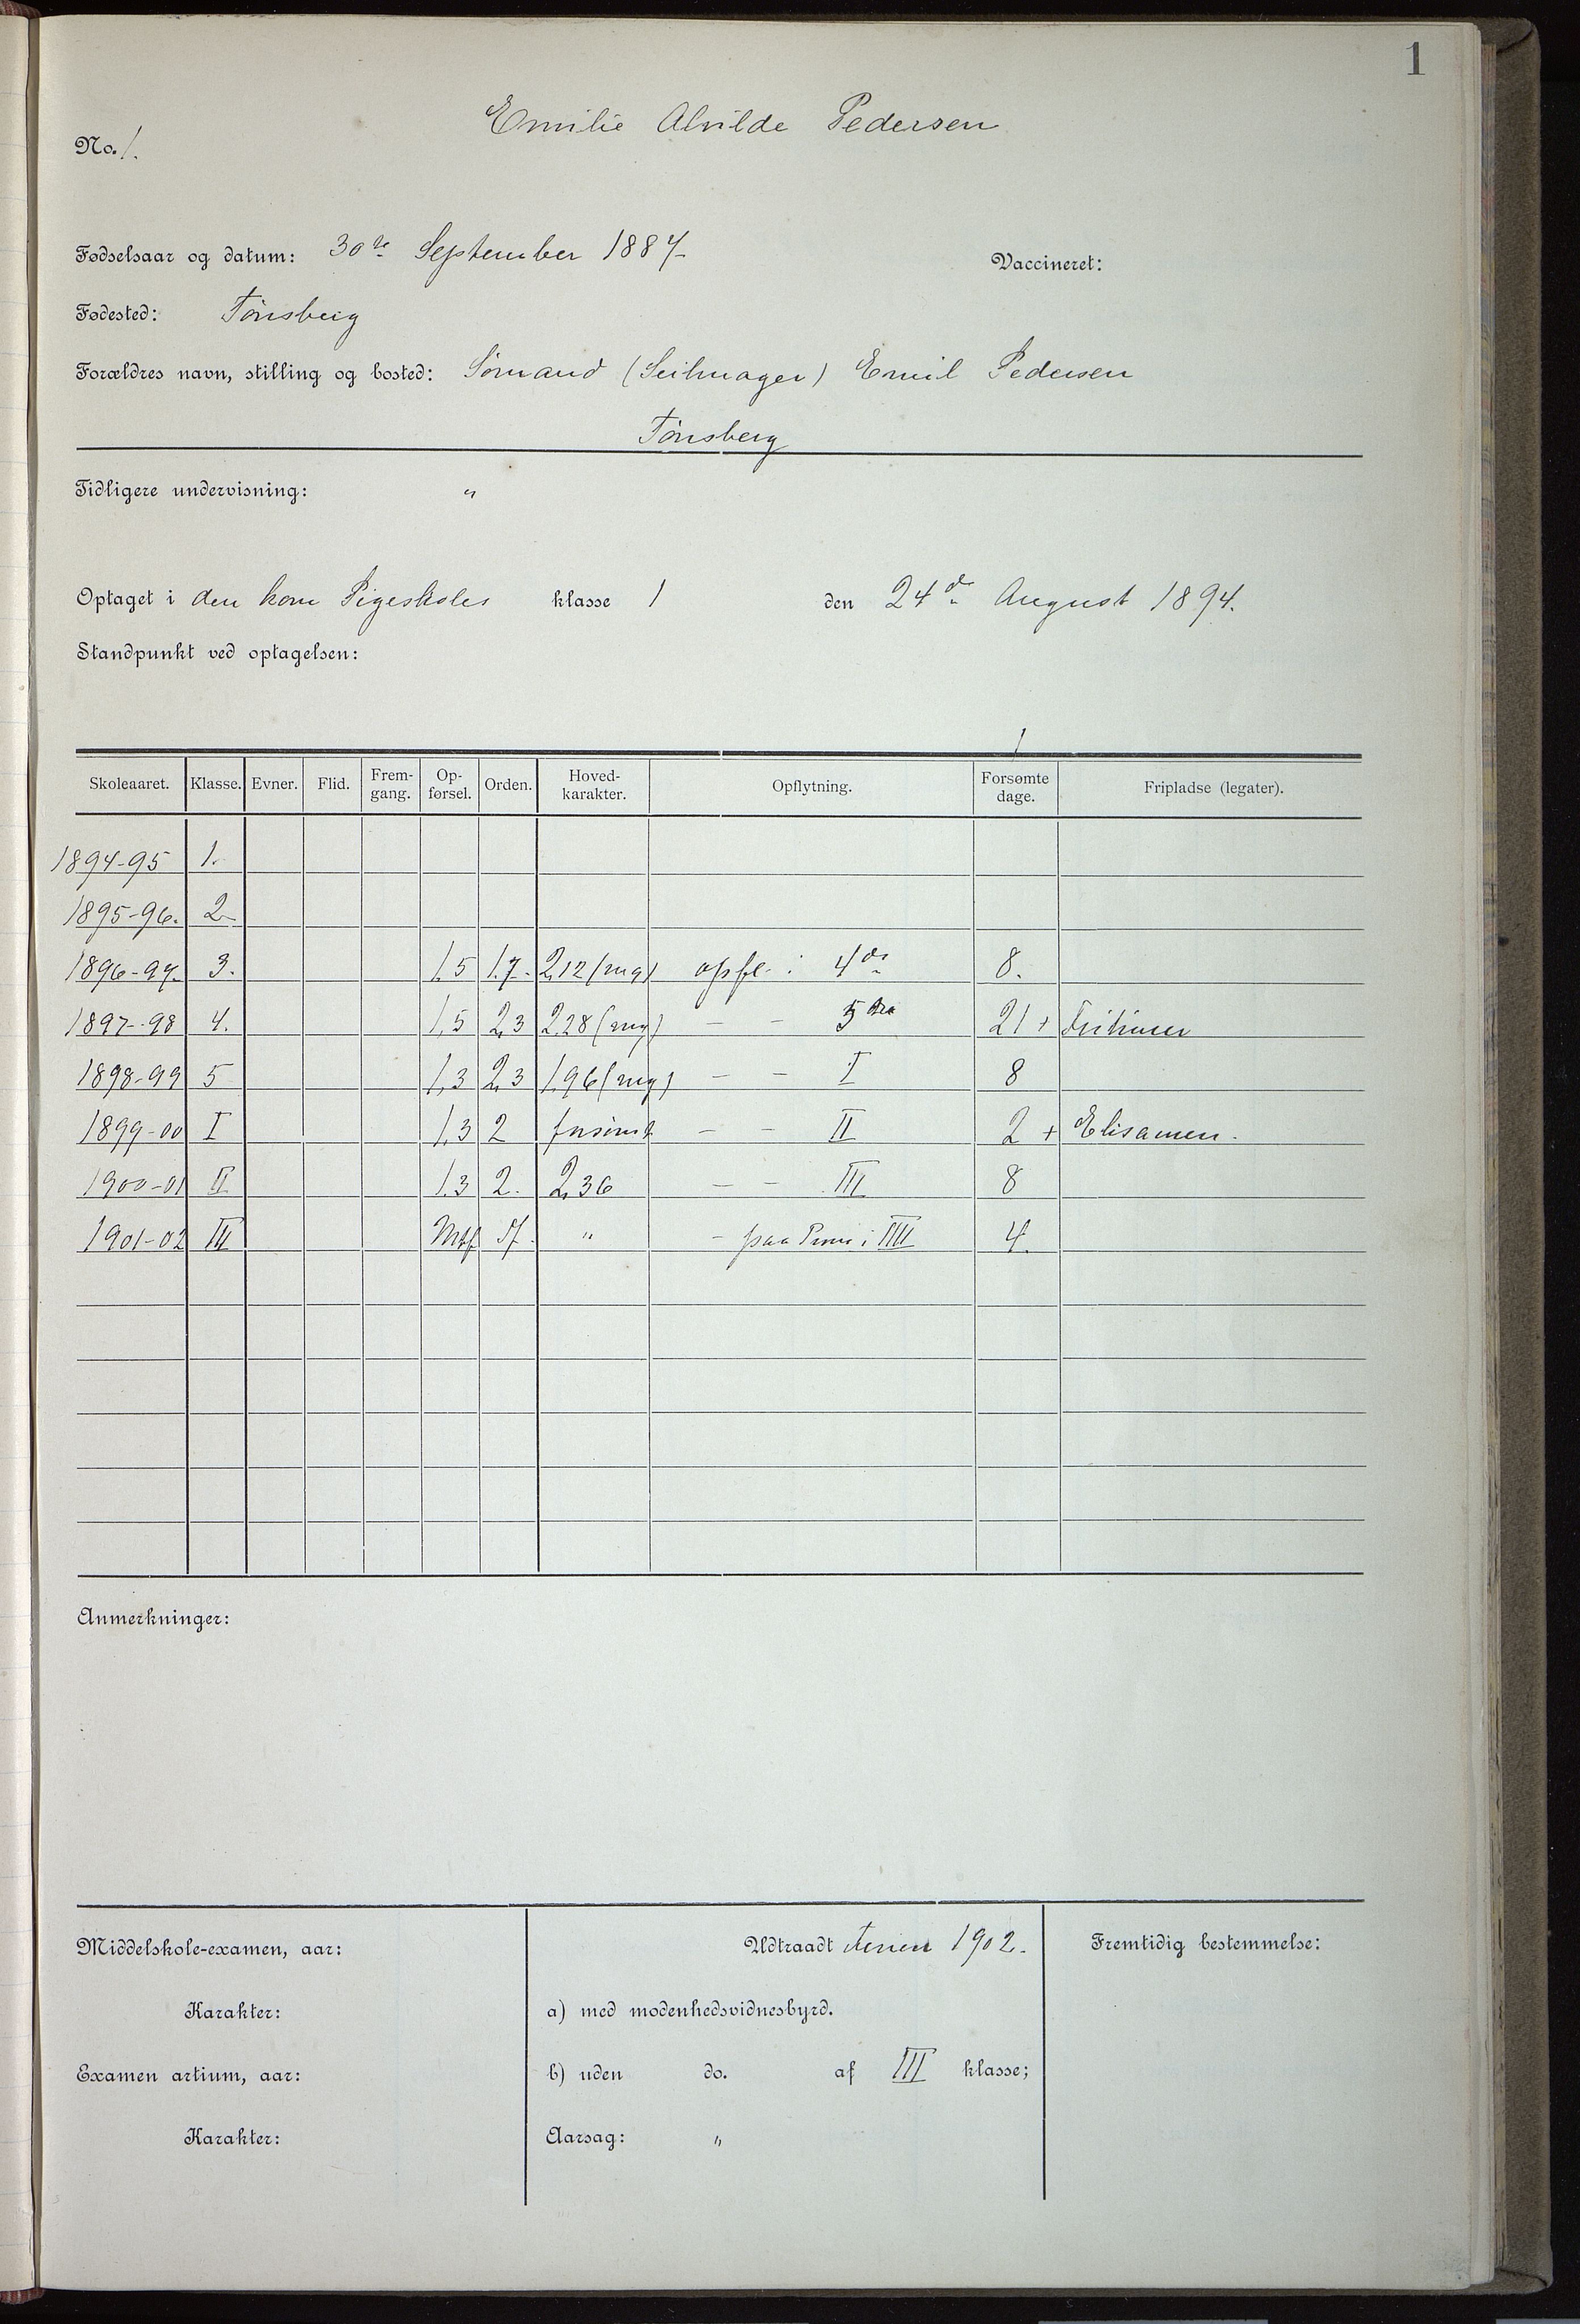 1
Emilie Alvilde Pedersen
No. 1.
Fødselsaar og datum: 30te September 1887
Vaccineret:
Fødested: Tönsberg
Forældres navn, stilling og bosted: Sömand (Seilmager) Emil Pedersen
Tönsberg
Tidligere undervisning: "
Optaget i den kom Pigeskoles klasse 1 den 24de August 1894.
Standpunkt ved optagelsen:
1
Skoleaaret. Klasse. Evner. Flid. Frem-gang. Op-førsel. Orden. Hoved-karakter. Opflytning. Forsømte dage. Fripladse (legater).
1894-95 1.
1895-96. 2
1896-97. 3. 1,5 1.7. 2,12 (mg) opfl. i 4de 8.
1897-98 4. 1,5 2,3 2.28 (mg) — — 5te 21 +
1898-99 5 1,3 2,3 1.96 (mg) — — I 8
1899-00 I 1,3 2 forsömt — — II 2 + Eksamen.
1900-01 II 1.3 2. 2,36 — — III 8
1901-02 III Mtf " - paa Pröve i IIII 4.
Anmerkninger:
Middelskole-examen, aar:
Karakter:
Examen artium, aar:
Karakter:
Udtraadt Ferien 1902.
a) med modenhedsvidnesbyrd.
b) uden do. af III klasse;
Aarsag: "
Fremtidig bestemmelse: